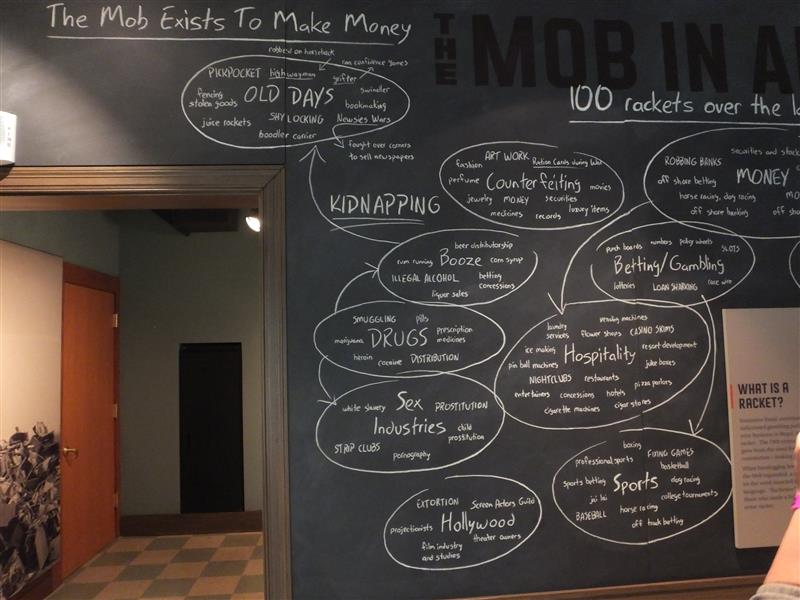 The Mob Exists To Make Money
THE MOB IN A
100 rackets over the la
robbed on horseback
ran confidence games
PICKPOCKET highwayman grifter
swindler
fencing stolen goods
OLD DAYS
bookmaking
juice rackets SHYLOCKING Newsies Wars
boodler carrier
fought over corners
to sell newspapers
KIDNAPPING
fashion ART WORK Ration Cards during War
perfume Counterfeiting movies
jewelry MONEY securities
medicines records luxury items
securities and stock
ROBBING BANKS MONEY
off shore betting
horse racing, dog racing MO
off shore banking off sh
beer distributorship
rum running Booze corn syrup
ILLEGAL ALCOHOL betting concessions
liquor sales
punch boards numbers policy wheels SLOTS
Betting/Gambling
lotteries LOAN SHARKING race wire
SMUGGLING pills
marijuana DRUGS prescription medicines
heroin cocaine DISTRIBUTION
laundry services vending machines
flower shops CASINO SKIMS
ice making Hospitality resort development
pin ball machines juke boxes
NIGHTCLUBS restaurants pizza parlors
entertainers concessions hotels
cigarette machines cigar stores
white slavery Sex PROSTITUTION
Industries child prostitution
STRIP CLUBS pornography
boxing
professional sports FIXING GAMES
basketball
sports betting Sports dog racing
jai lai college tournaments
BASEBALL horse racing
off track betting
EXTORTION Screen Actors Guild
projectionists Hollywood
theater owners
film industry and studios
WHAT IS A
RACKET?